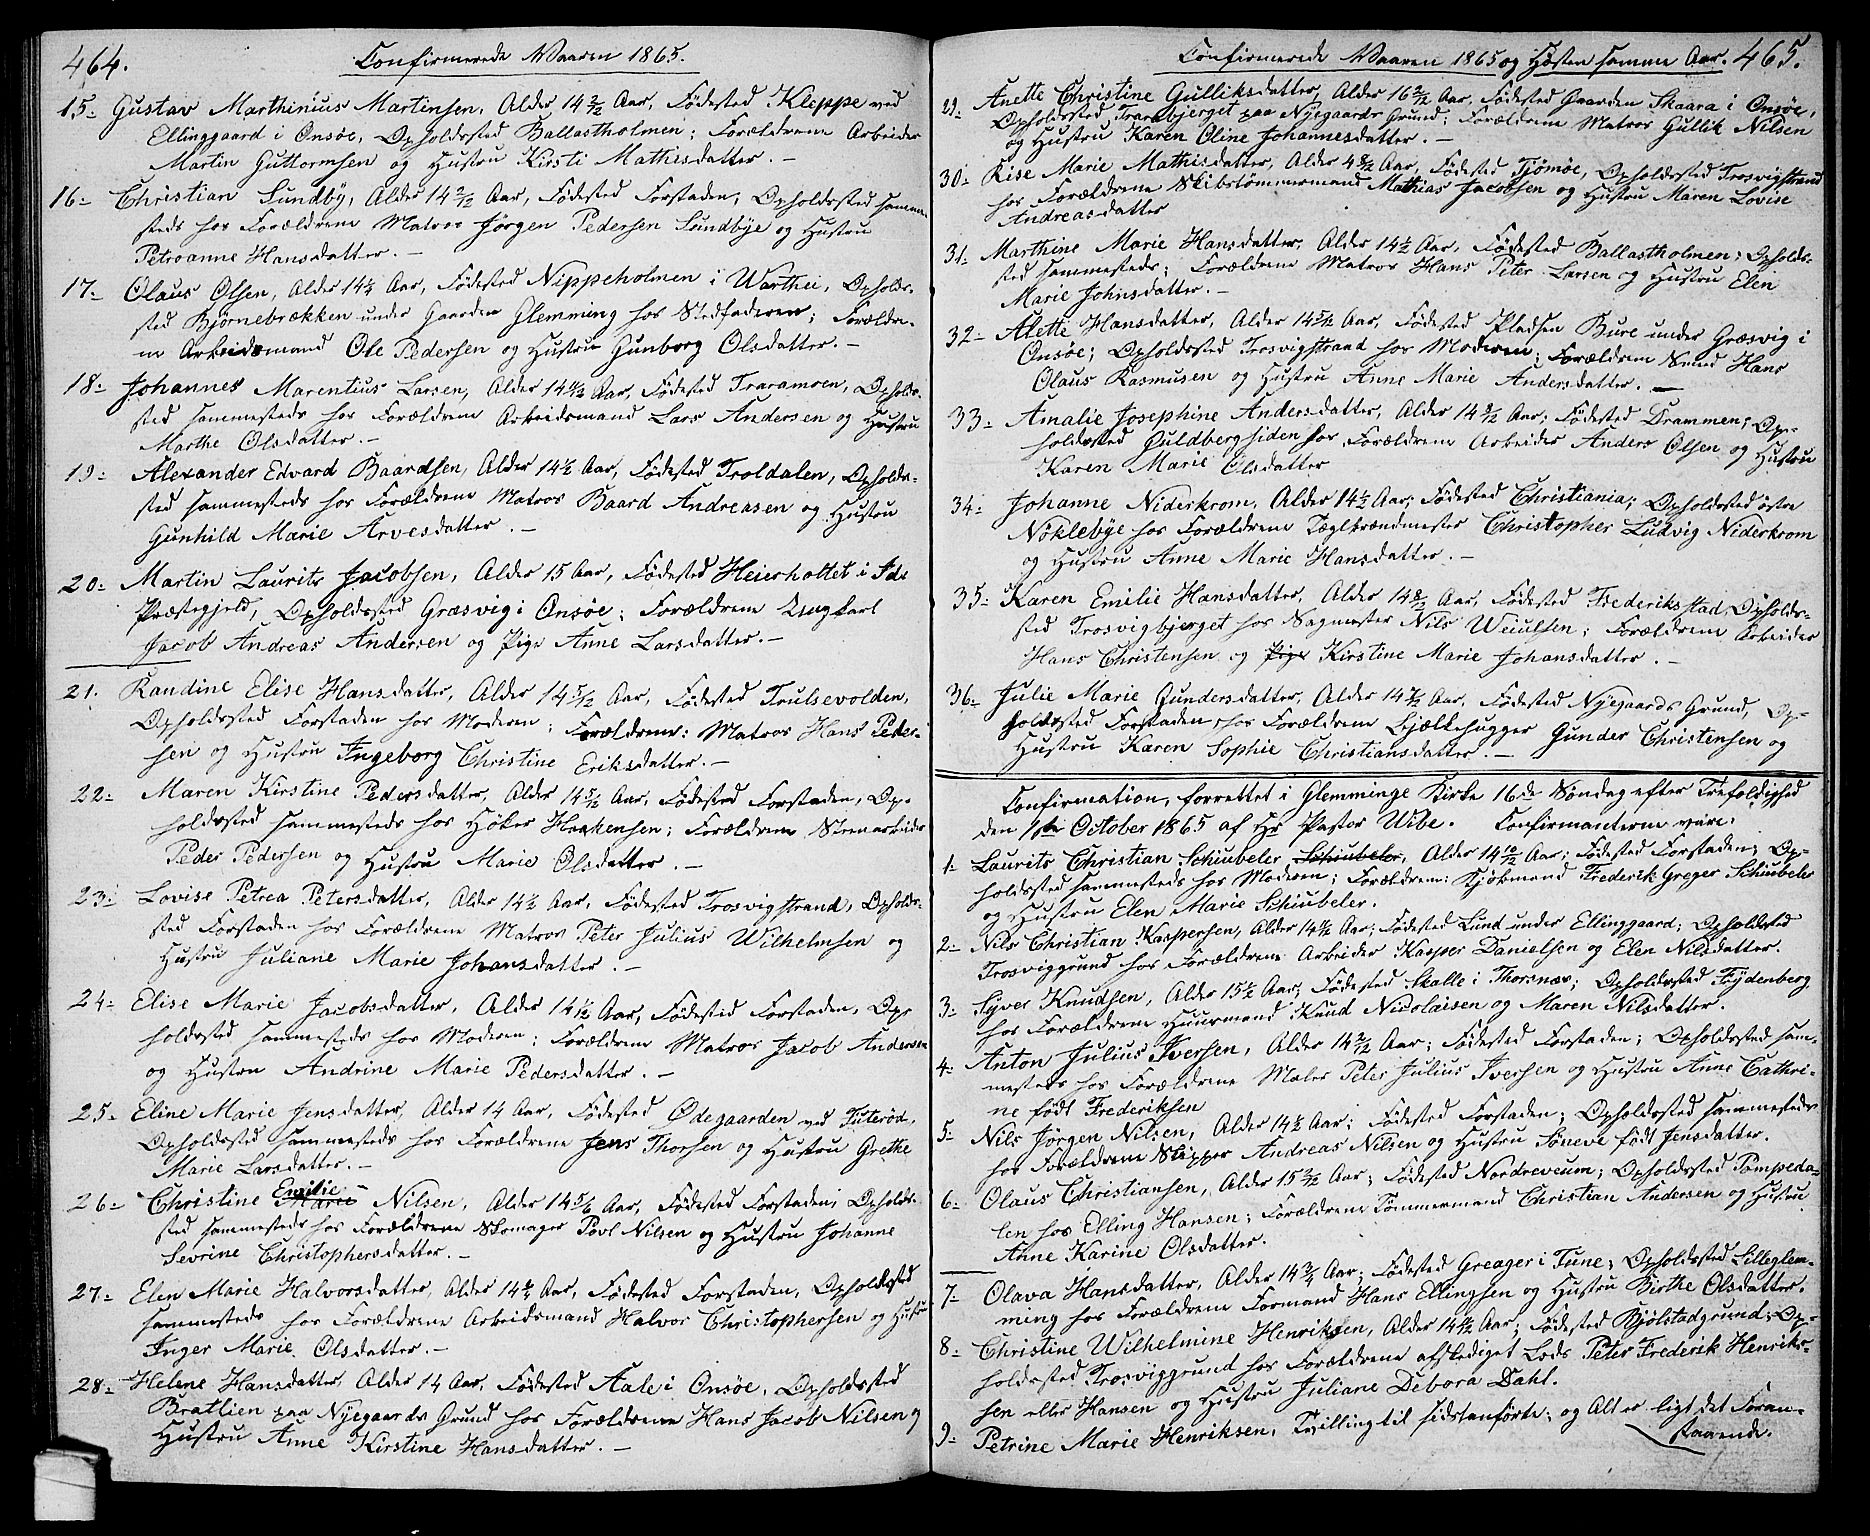 464.
Confirmerede Vaaren 1865.
15. Gustav Marthinius Martinsen, Alder 14 2/12 Aar, Födested Klippe ved
Ellinggaard i Onsöe, Opholdssted Ballastholmen; Forældrene Arbeider
Martin Guttormsen og Hustru Kirsti Mathisdatter. –
16. Christian Sundby, Alder 14 2/12 Aar, Födested Forstaden, Opholdssted samme
steds hos Forældrene Matros Jörgen Pedersen Sundbye og Hustru
Petroanne Hansdatter. –
17. Olaus Olsen, Alder 14½ Aar, Födested Nippeholmen i Warthei, Opholds-
sted Björnebrækken under Gaarden Glemming hos Stedfaderen; Forældre-
ne Arbeidsmand Ole Pedersen og Hustru Gunborg Olsdatter. –
18. Johannes Marentius Larsen, Alder 14 11/12 Aar, Födested Traramoen, Opholds-
sted sammesteds hos Forældrene Arbeidsmand Lars Andersen og Hustru
Marthe Olsdatter. –
19. Alexander Edvard Baardsen, Alder 14½ Aar, Födested Troldalen, Opholds-
sted sammesteds hos Forældrene Matros Baard Andreasen og Hustru
Gunhild Marie Arvesdatter. –
20. Martin Laurits Jacobsen, Alder 15 Aar, Födested Heierhottet i Ids
Præstegjeld, Opholdssted Græsvig i Onsöe; Forældrene Ungkarl
Jacob Andreas Andersen og Pige Anne Larsdatter. –
21. Randine Elise Hansdatter, Alder 14 5/12 Aar, Födested Trulsevolden,
Opholdssted Forstaden hos Moderen; Forældrene: Matros Hans Peder-
sen og Hustru Ingeborg Christine Eriksdatter. –
22. Maren Kirstine Pedersdatter, Alder 14 5/12 Aar, Födested Forstaden, Op-
holdssted sammesteds hos Höker Haakensen; Forældrene Stenarbeider
Peder Pedersen og Hustru Marie Olsdatter. –
23. Lovise Petrea Petersdatter, Alder 14½ Aar, Födested Trosvigstrand, Opholds-
sted Forstaden hos Forældrene Matros Peter Julius Wilhelmsen og
Hustru Juliane Marie Johansdatter. –
24. Elise Marie Jacobsdatter, Alder 14½ Aar, Födested Forstaden, Op-
holdssted sammesteds hos Moderen; Forældrene Matros Jacob Andersen
og Hustru Andrine Marie Pedersdatter. –
25. Eline Marie Jensdatter, Alder 14 Aar, Födested Ödegaarden ved Tuteröd,
Opholdssted sammesteds hos Forældrene Jens Thorsen og Hustru Grethe
Marie Larsdatter. –
26. Christine Emilie Marie Nilsen, Alder 14 5/6 Aar, Födested Forstaden, Opholds-
sted sammesteds hos Forældrene Skomager Povl Nilsen og Hustru Johanne
Sevrine Christophersdatter. –
27. Elen Marie Halvorsdatter, Alder Aar, Födested Forstaden, Opholdssted
sammesteds hos Forældrene Arbeidsmand Halvor Christophersen og Hustru
Inger Marie Olsdatter. –
28. Helene Hansdatter, Alder 14 Aar, Födested Aale i Onsöe, Opholdssted
Bratlien paa Nyegaards Grund hos Forældrene Hans Jacob Nilsen og
Hustru Anne Kirstine Hansdatter. –
Confirmerede Vaaren 1865 og Hösten samme Aar. 465.
29. Anette Christine Gulliksdatter, Alder 16 2/12 Aar, Födested Gaarden Skaara i Onsöe,
Opholdssted Trarabjerget paa Nyegaards Grund; Forældrene Matros Gullik Nilsen
og Hustru Karen Oline Johannesdatter. –
30. Rise Marie Mathisdatter, Alder Aar, Födested Tjömöe, Opholdssted Trosvigstrand
hos Forældrene Skibstömmermand Mathias Jacobsen og Hustru Maren Lovise
Andreasdatter
31. Marthine Marie Hansdatter, Alder 14½ Aar, Födested Ballastholmen; Opholds-
sted sammesteds; Forældrene Matros Hans Peter Larsen og Hustru Elen
Marie Johnsdatter. –
32. Alette Hansdatter, Alder 14 5/12 Aar, Födested Pladsen Bure under Græsvig i
Onsöe; Opholdssted Trosvigstrand hos Moderen; Forældrene Smed Hans
Olaus Rasmusen og Hustru Anne Marie Andersdatter. –
33. Amalie Josephine Andersdatter, Alder 14 8/12 Aar; Födested Drammen; Op-
holdssted Guldbergsiden hos Forældrene Arbeider Anders Olsen og Hustru
Karen Marie Olsdatter
34. Johanne Niderkrom, Alder 14½ Aar; Födested Christiania; Opholdssted östre
Nöklebye hos Forældrene Teglbrændmester Christopher Ludvig Niderkrom
og Hustru Anne Marie Hansdatter. –
35. Karen Emilie Hansdatter, Alder 14 8/12 Aar, Födested Frederikstad, Opholds-
sted Trosvigbjerget hos Sagmester Nils Weiulsen; Forældrene Arbeider
Hans Christensen og Pige Kirstine Marie Johansdatter. –
36. Julie Marie Gundersdatter, Alder 14 7/12 Aar, Födested Nyegaards Grund, Op-
holdssted Forstaden, hos Forældrene Bjælkehugger Gunder Christensen og
Hustru Karen Sophie Christiansdatter. –
Confirmation, forrettet i Glemminge Kirke 16de Söndag efter Trefoldighed
den 1ste October 1865 af Hr Pastor Wibe. Confirmanterne vare:
1. Laurits Christian Schiubeler Schiubeler, Alder 14 10/12 Aar; Födested Forstaden; Op-
holdssted sammesteds hos Moderen; Forældrene: Kjöbmand Frederik Greger Schiubeler
og Hustru Elen Marie Schiubeler.
2. Nils Christian Kaspersen, Alder 14½ Aar; Födested Lund under Ellinggaard; Opholdssted
Trosviggrund hos Forældrene Arbeider Kasper Danielsen og Elen Nilsdatter.
3. Syver Knudsen, Alder 15½ Aar; Födested Skalle i Thorsnæs; Opholdssted Frydenberg
hos Forældrene Huusmand Knud Nicolaisen og Maren Nilsdatter.
4. Anton Julius Iversen, Alder 14 2/12 Aar; Födested Forstaden; Opholdssted sam-
mesteds hos Forældrene Maler Peter Julius Iversen og Hustru Anne Cathri-
ne födt Frederiksen
5. Nils Jörgen Nilsen, Alder 14½ Aar; Födested Forstaden; Opholdssted sammesteds
hos Forældrene Skipper Andreas Nilsen og Hustru Söneve födt Jensdatter.
6. Olaus Christiansen, Alder 15 2/12 Aar; Födested Nordreveum; Opholdssted Pompeda-
len hos Elling Hansen; Forældrene Tömmermand Christian Andersen og Hustru
Anne Karine Olsdatter.
7. Olava Hansdatter, Alder 14¾ Aar; Födested Greager i Tune; Opholdssted Lilleglem-
ming hos Forældrene Formand Hans Ellingsen og Hustru Birthe Olsdatter.
8. Christine Wilhelmine Henriksen, Alder 14½ Aar; Födested Kjölstadgrund; Op-
holdssted Trosviggrund hos Forældrene afskediget Lods Peter Frederik Henrik-
sen eller Hansen og Hustru Juliane Debora Dahl.
9. Petrine Marie Henriksen, Tvilling til sidstanförte; og Alt er ligt det Foran-
staaende.